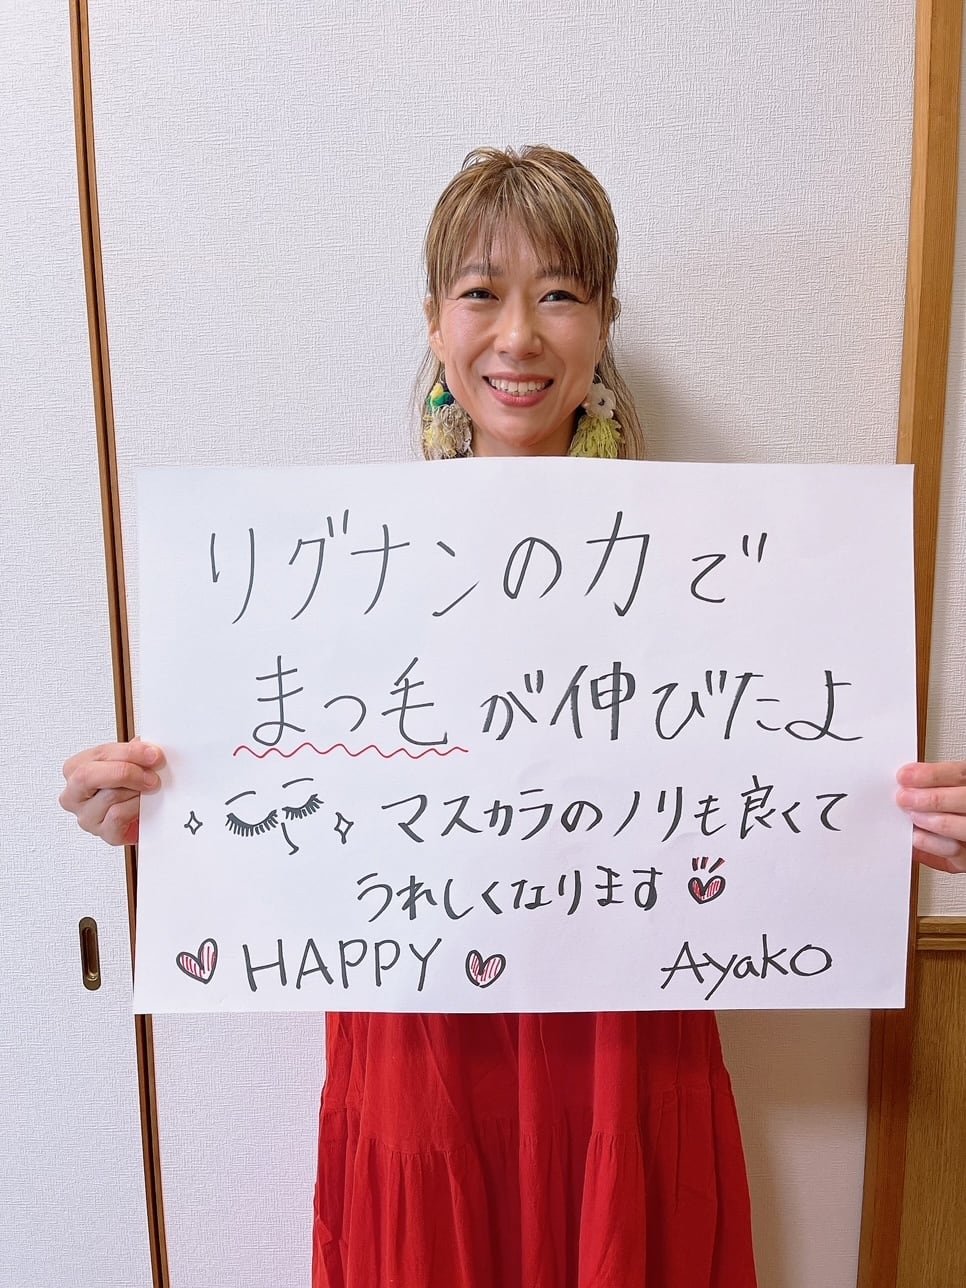 リグナンの力で
まつ毛が伸びたよ
マスカラのノリも良くて
うれしくなります
HAPPY Ayako